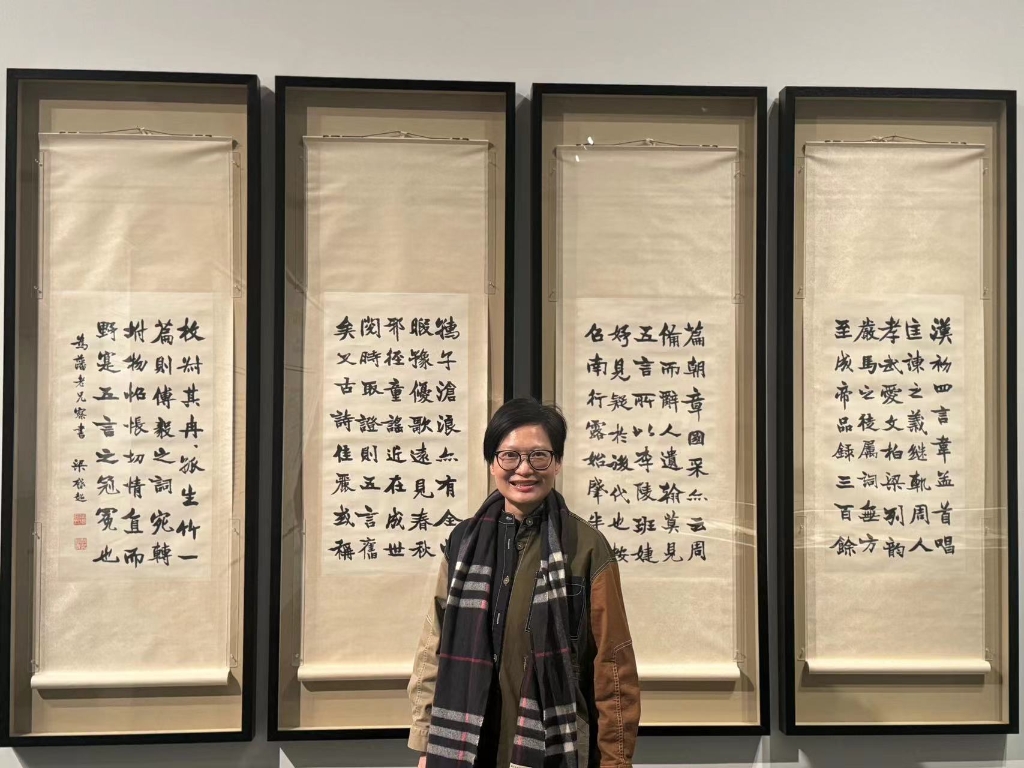 漢初四言韋孟首唱
匡諫之義继軌周人
孝武愛文柏梁列韵
嚴馬之後属詞無方
至成帝品録三百餘
篇朝章國采亦云周
備而辭人遺翰莫見
五言所以李陵班婕
妤見疑於後代也按
召南行露始肇半
滄浪亦有全
暇豫優歌遠見春秋
邪徑童謠近在成世
閲時取證則五言舊
矣又古詩佳麗或稱
枚叔其冉冉孤生竹一
篇則傅毅之詞宛轉
坿物怊悵切情直而
野寔五言之冠冕也
老兄察書 梁啟超